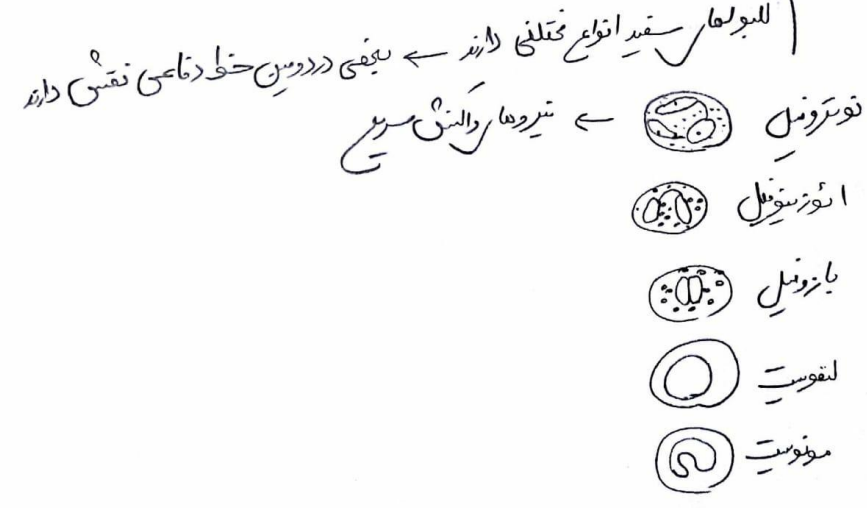 گلبولهای سفید انواع مختلفی دارند ← بعضی در دومین خط دفاعی نقش دارند
نوتروفیل ← نیروهای واکنش سریع
ائوزینوفیل
بازوفیل
لنفوسیت
مونوسیت